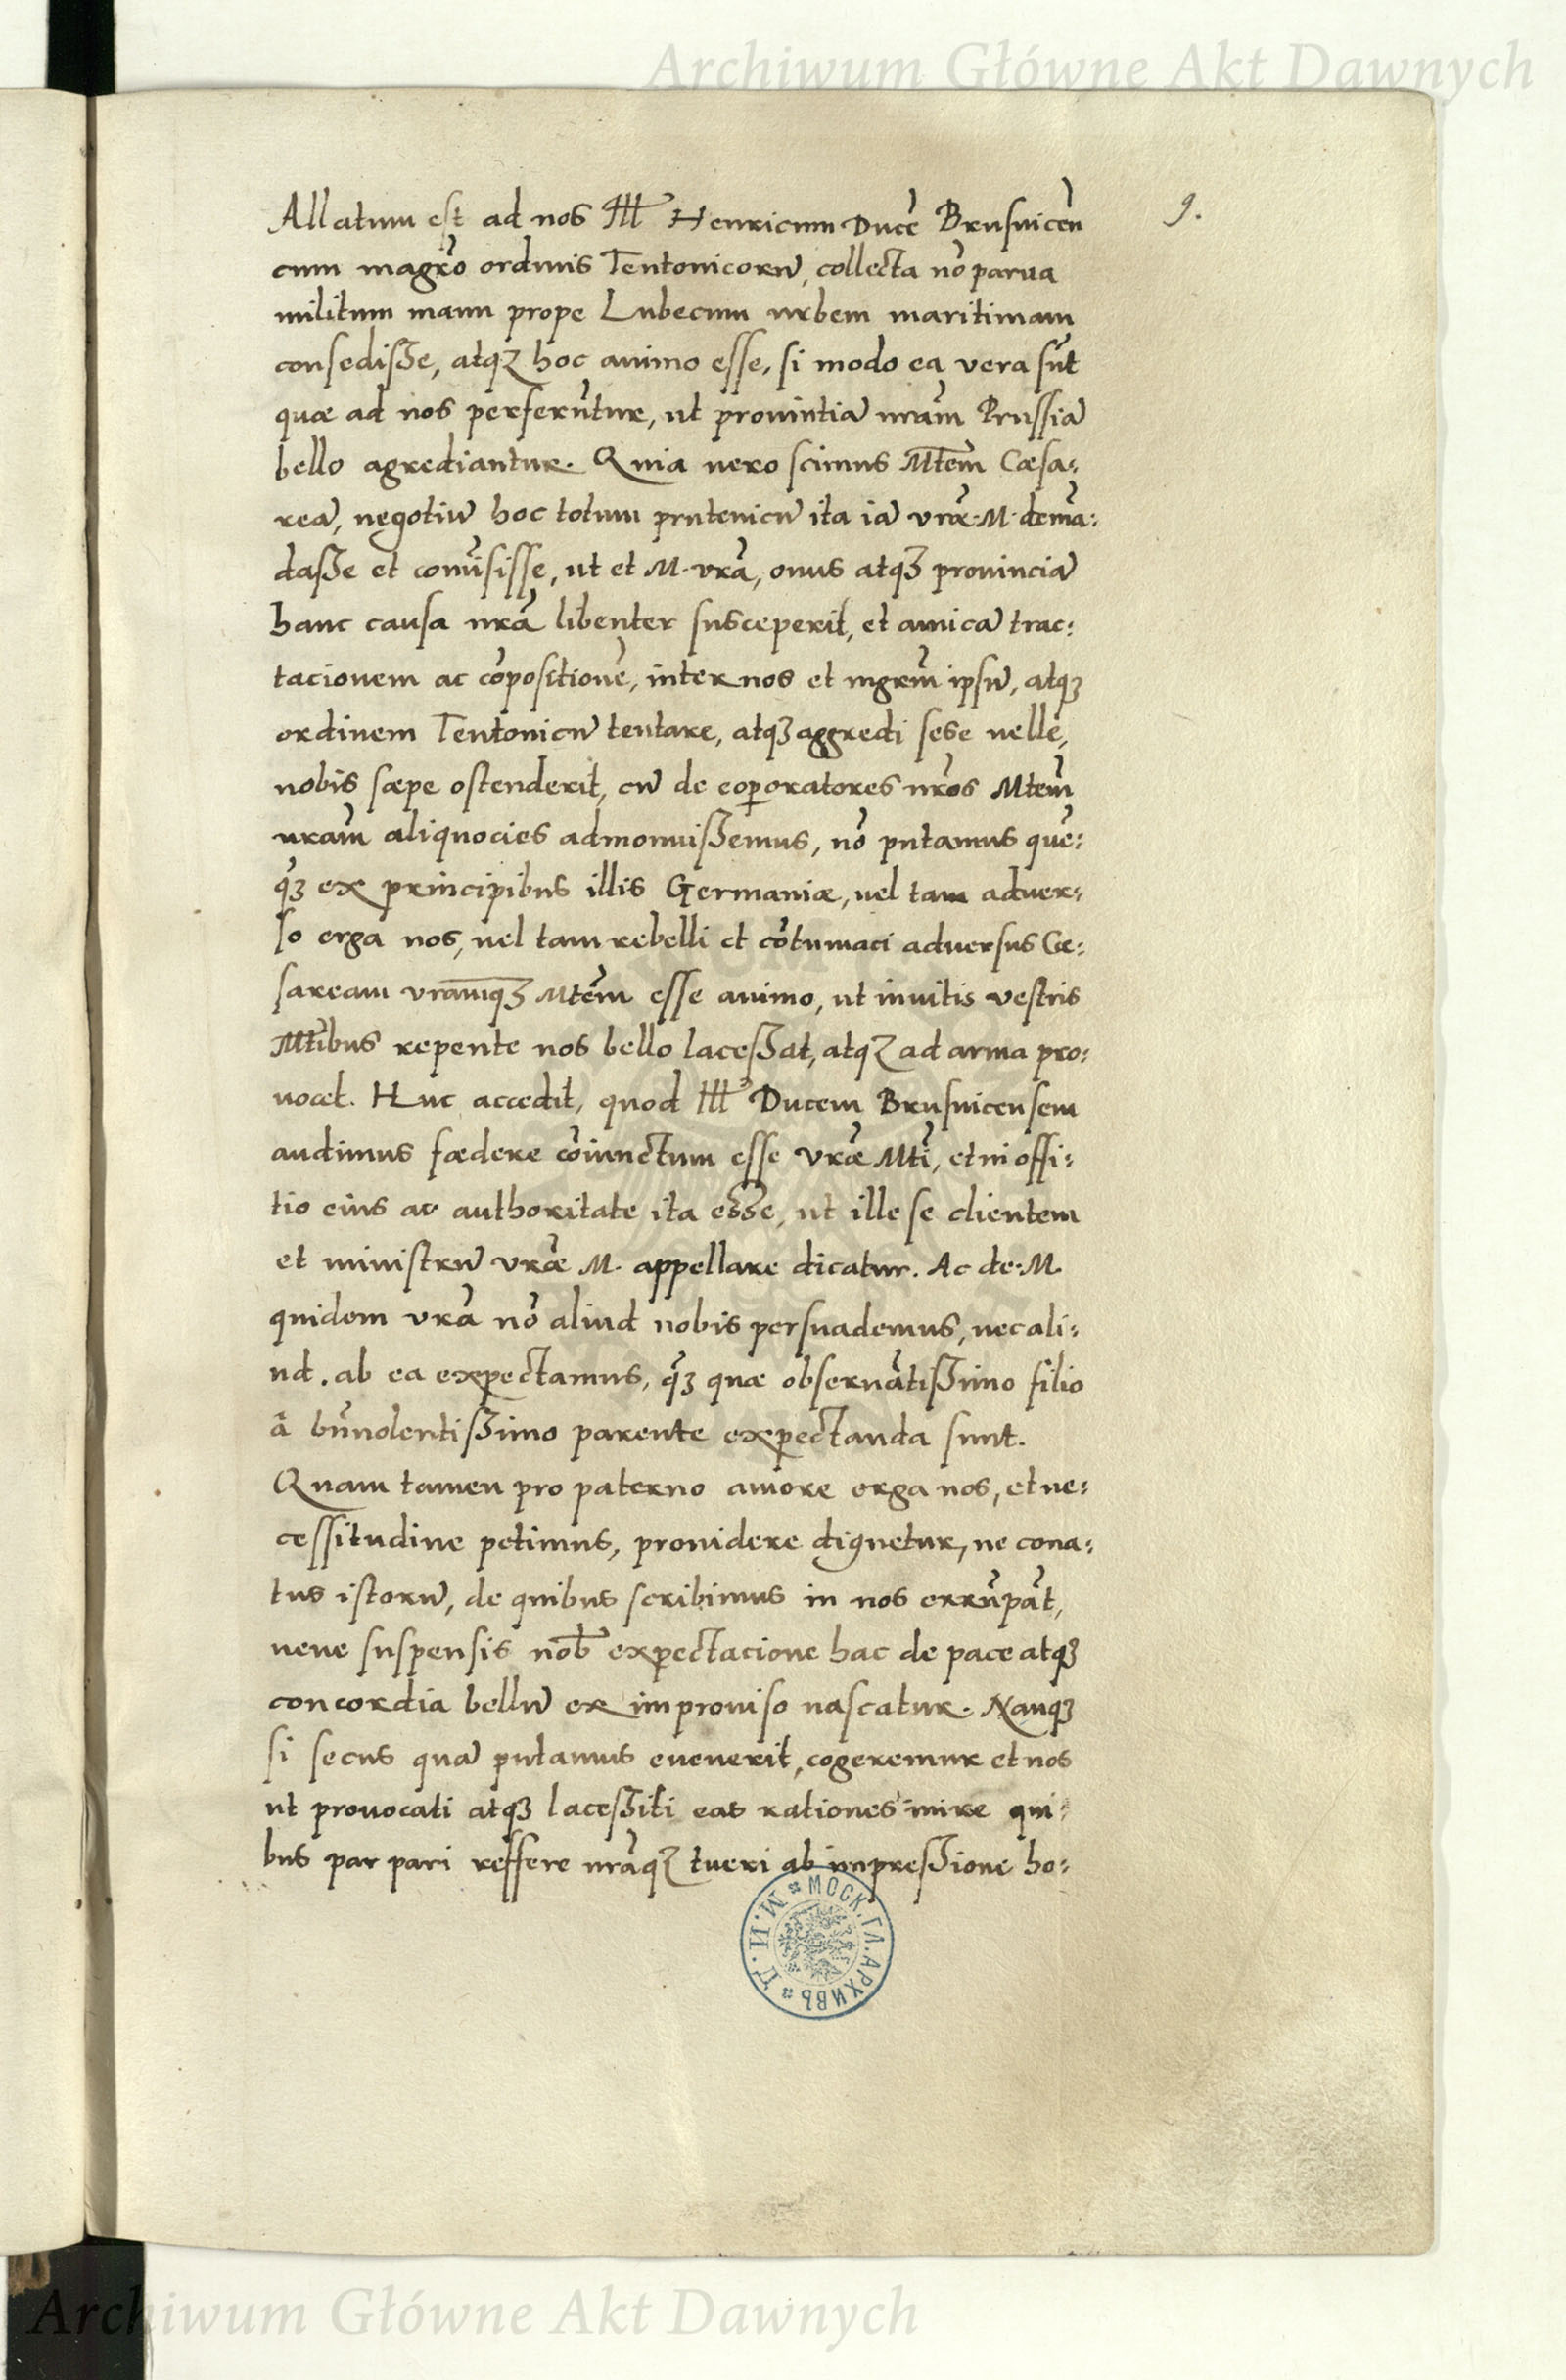 Archiwum Główne Akt Dawnych
9.
Allatum est ad nos Ill Henricum Ducẽ Brusuicẽn
cum magr̃o ordinis Teutonicorũ, collecta nõ parua
militum manu prope Lubecum urbem maritimam
consedisse, atqȝ hoc animo esse, si modo ea vera sũt
quæ ad nos perferũtur, ut prouintiã nr̃am Prussiã
bello agrediantur. Quia uero scimus Mtẽm Cæsa:
reã, negotiũ hoc totum prutenicũ ita iã vrã̃e. M. demã:
dasse et comĩsisse, ut et M. vrã, onus atqȝ prouinciã
hanc causa nrã libenter susceperit, et amicã trac:
tacionem ac cõpositionẽ, inter nos et mgrm̃ ipsũ, atqȝ
ordinem Teutonicũ tentare, atqȝ aggredi sese uelle,
nobis sæpe ostenderit, cũ de eo per oratores nrõs Mtem̃
uram̃ aliquocies admonuissemus, nõ putamus quẽ:
q̃ȝ ex principibus illis Germaniæ, uel tam aduer:
so erga nos, uel tam rebelli et cõtumaci aduersus Cæ:
saream vram̃qȝ Mtẽm esse animo, ut inuitis vestris
Mtĩbus repente nos bello lacessat, atqȝ ad arma pro:
uocet. Huc accedit, quod Ill Ducem Brusuicensem
audimus fœdere cõiunctum esse vrã̃e Mtĩ, et in offi:
tio eius ac authoritate ita esse, ut ille se clientem
et ministrũ vrã̃e M. appellare dicatur. Ac de. M.
quidem vrã nõ aliud nobis persuademus, nec ali:
ud. ab ea expectamus, q̃ȝ quæ obseruãtissimo filio
ã bñuolentissimo parente expectanda sunt.
Quam tamen pro paterno amore erga nos, et ne:
cessitudine petimus, prouidere dignetur, ne cona:
tus istorũ, de quibus scribimus in nos errũpãt,
neue suspensis nob̃ expectacione hac de pace atqȝ
concordia bellũ ex improuiso nascatur. Nanqȝ
si secus quã putamus euenerit, cogeremur et nos
ut prouocati atqȝ lacessiti eas rationes inire qui:
bus par pari reffere nrãqȝ tueri ab impressione ho:
МОСК. ГЛ. АРХИВЪ * М. И. Д. *
Archiwum Główne Akt Dawnych